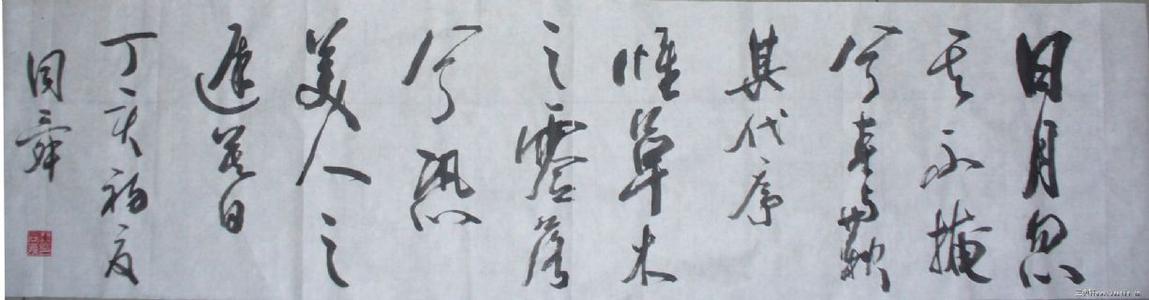 日月忽
其不掩
兮春与秋
其代序
惟草木
之零落
兮恐
美人之
遲暮
丁亥初夏